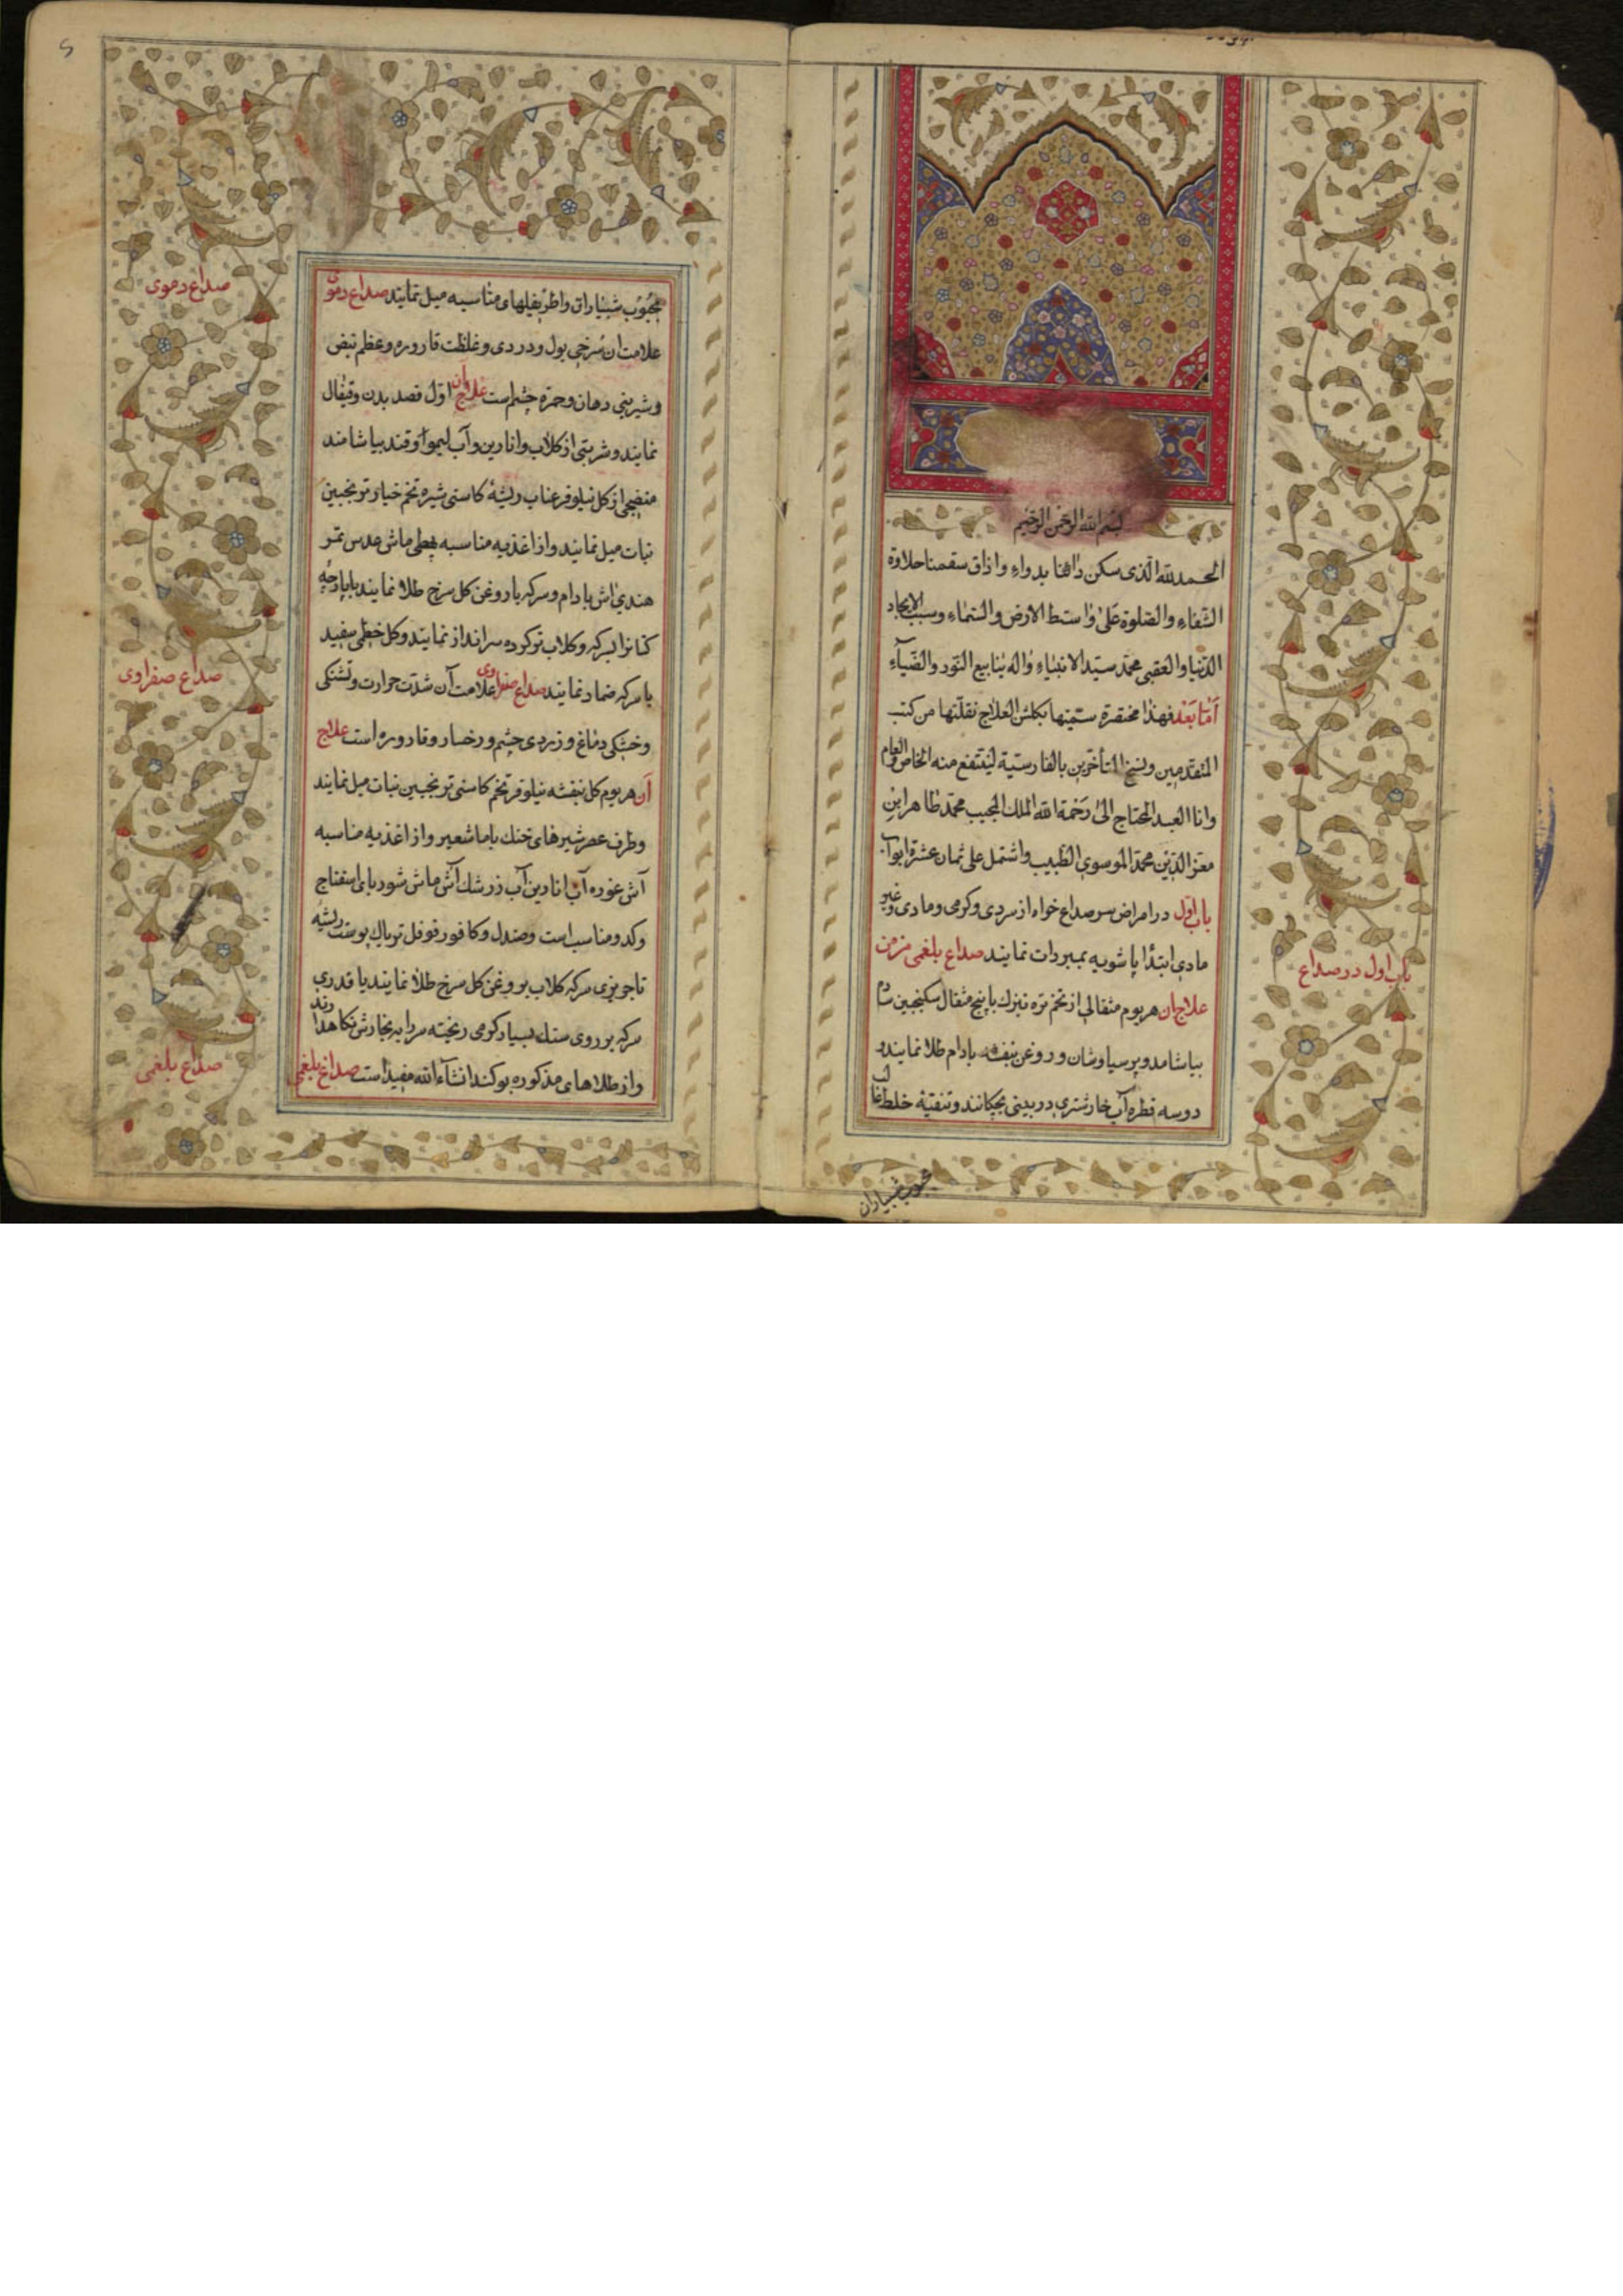 بسم الله الرحمن الرحیم
الحمد لله الذی سکن دائنا بدواء و اذاق سقمنا حلاوة
الشفاء والصلوة علی واسط الارض والسماء وسبب الایجاد
الدنیا والعقبی محمد سید الانبیاء واله ینابیع النور والضیآء
اما بعد فهذا مختصرة سمیتها بکلشن العلاج نقلتها من کتب
المتقدمین ونسخ المتأخرین بالفارسیة لینتفع منه الخاص والعام
وانا العبد المحتاج الی رحمة الله الملک المجیب محمد طاهر ابن
معز الدین محمد الموسوی الطبیب واشتمل علی ثمان عشرة ابوآب
باب اول در امراض سر صداع خواه از سردی وکرمی ومادی وغیر
مادی ابتدا پاشویه بمبردات نمایند صداع بلغمی مزمن
علاج ان هر یوم مثقالی از تخم تره تیزک با پنج مثقال سکنجبین ساده
بیاشامد و پرسیاوشان و روغن بنفشه بادام طلا نمایند و
دو سه قطره آب خارشتری در بینی بچکانند و تنقیه خلط غالب
بحبوب شبیاران
باب اول در صداع
بحبوب شبیاران واطریفلهای مناسبه میل نمایند صداع دموی
علامت ان سرخی بول ودردی وغلظت قاروره وعظم نبض
وشیرینی دهان وحمرة چشم است علاج ان اول فصد بدن وقیفال
نمایند وشربتی از کلاب وانارین وآب لیمو وقند بیاشامند
منضجی از کل نیلوفر عناب ریشهٔ کاسنی شیره تخم خیار ترنجبین
نبات میل نمایند واز اغذیه مناسبه ماش عدس تمر
هندی اش بادام وسرکه باروغن کل سرخ طلا نمایند باپارچه
کتانرا بسرکه وکلاب ترکرده سرانداز نمایند وکل خطمی سفید
با سرکه ضماد نمایند صداع صفراوی علامت آن شدت حرارت وتشنکی
وخشکی دماغ وزردی چشم ورخسار وقاروره است علاج
آن هر یوم کل بنفشه نیلوفر تخم کاسنی ترنجبین نبات میل نمایند
وطرف عصر شیرهای خنک باماشعیر واز اغذیه مناسبه
آش غوره آب انارین آب زرشک آش ماش شوربای اسفناج
وکدو مناسب است وصندل وکافور فوفل تریاک پوست ریشه
تاجریزی سرکه کلاب بروغن کل سرخ طلا نمایند یا قدری
سرکه بر روی سنک بسیار کرمی ریخته سر را به بخارش نکاهدارند
واز طلاهای مذکوره بو کند انشآءالله مفید است صداع بلغمی
صداع دموی
صداع صفراوی
صداع بلغمی